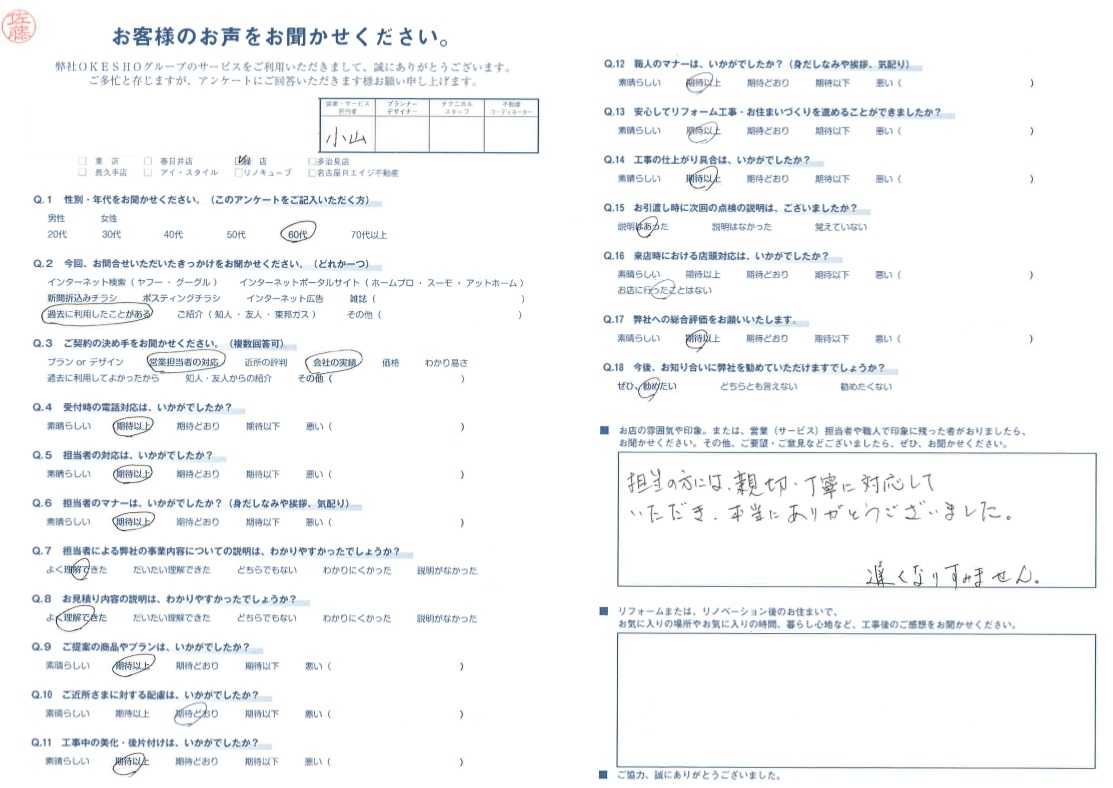 佐藤
お客様のお声をお聞かせください。
弊社OKESHOグループのサービスをご利用いただきまして、誠にありがとうございます。
ご多忙と存じますが、アンケートにご回答いただきます様お願い申し上げます。
営業・サービス担当者 プランナーデザイナー テクニカルスタッフ 不動産コーディネーター
小山
□ 東 店 □ 春日井店 ☑ 緑 店 □多治見店
□ 長久手店 □ アイ・スタイル □リノキューブ □名古屋Rエイジ不動産
Q.1 性別・年代をお聞かせください。（このアンケートをご記入いただく方）
男性 女性
20代 30代 40代 50代 60代 70代以上
Q.2 今回、お問合せいただいたきっかけをお聞かせください。（どれか一つ）
インターネット検索（ ヤフー ・ グーグル ） インターネットポータルサイト（ ホームプロ ・ スーモ ・ アットホーム ）
新聞折込みチラシ ポスティングチラシ インターネット広告 雑誌（ ）
過去に利用したことがある ご紹介（ 知人 ・ 友人 ・ 東邦ガス ） その他（ ）
Q.3 ご契約の決め手をお聞かせください。（複数回答可）
プラン or デザイン 営業担当者の対応 近所の評判 会社の実績 価格 わかり易さ
過去に利用してよかったから 知人・友人からの紹介 その他（ ）
Q.4 受付時の電話対応は、いかがでしたか？
素晴らしい 期待以上 期待どおり 期待以下 悪い（ ）
Q.5 担当者の対応は、いかがでしたか？
素晴らしい 期待以上 期待どおり 期待以下 悪い（ ）
Q.6 担当者のマナーは、いかがでしたか？（身だしなみや挨拶、気配り）
素晴らしい 期待以上 期待どおり 期待以下 悪い（ ）
Q.7 担当者による弊社の事業内容についての説明は、わかりやすかったでしょうか？
よく理解できた だいたい理解できた どちらでもない わかりにくかった 説明がなかった
Q.8 お見積り内容の説明は、わかりやすかったでしょうか？
よく理解できた だいたい理解できた どちらでもない わかりにくかった 説明がなかった
Q.9 ご提案の商品やプランは、いかがでしたか？
素晴らしい 期待以上 期待どおり 期待以下 悪い（ ）
Q.10 ご近所さまに対する配慮は、いかがでしたか？
素晴らしい 期待以上 期待どおり 期待以下 悪い（ ）
Q.11 工事中の美化・後片付けは、いかがでしたか？
素晴らしい 期待以上 期待どおり 期待以下 悪い（ ）
Q.12 職人のマナーは、いかがでしたか？（身だしなみや挨拶、気配り）
素晴らしい 期待以上 期待どおり 期待以下 悪い（ ）
Q.13 安心してリフォーム工事・お住まいづくりを進めることができましたか？
素晴らしい 期待以上 期待どおり 期待以下 悪い（ ）
Q.14 工事の仕上がり具合は、いかがでしたか？
素晴らしい 期待以上 期待どおり 期待以下 悪い（ ）
Q.15 お引渡し時に次回の点検の説明は、ございましたか？
説明はあった 説明はなかった 覚えていない
Q.16 来店時における店頭対応は、いかがでしたか？
素晴らしい 期待以上 期待どおり 期待以下 悪い（ ）
お店に行ったことはない
Q.17 弊社への総合評価をお願いいたします。
素晴らしい 期待以上 期待どおり 期待以下 悪い（ ）
Q.18 今後、お知り合いに弊社を勧めていただけますでしょうか？
ぜひ、勧めたい どちらとも言えない 勧めたくない
■ お店の雰囲気や印象。または、営業（サービス）担当者や職人で印象に残った者がおりましたら、
お聞かせください。その他、ご要望・ご意見などございましたら、ぜひ、お聞かせください。
担当の方には、親切・丁寧に対応して
いただき、本当にありがとうございました。
遅くなりすみません。
■ リフォームまたは、リノベーション後のお住まいで、
お気に入りの場所やお気に入りの時間、暮らし心地など、工事後のご感想をお聞かせください。
■ ご協力、誠にありがとうございました。